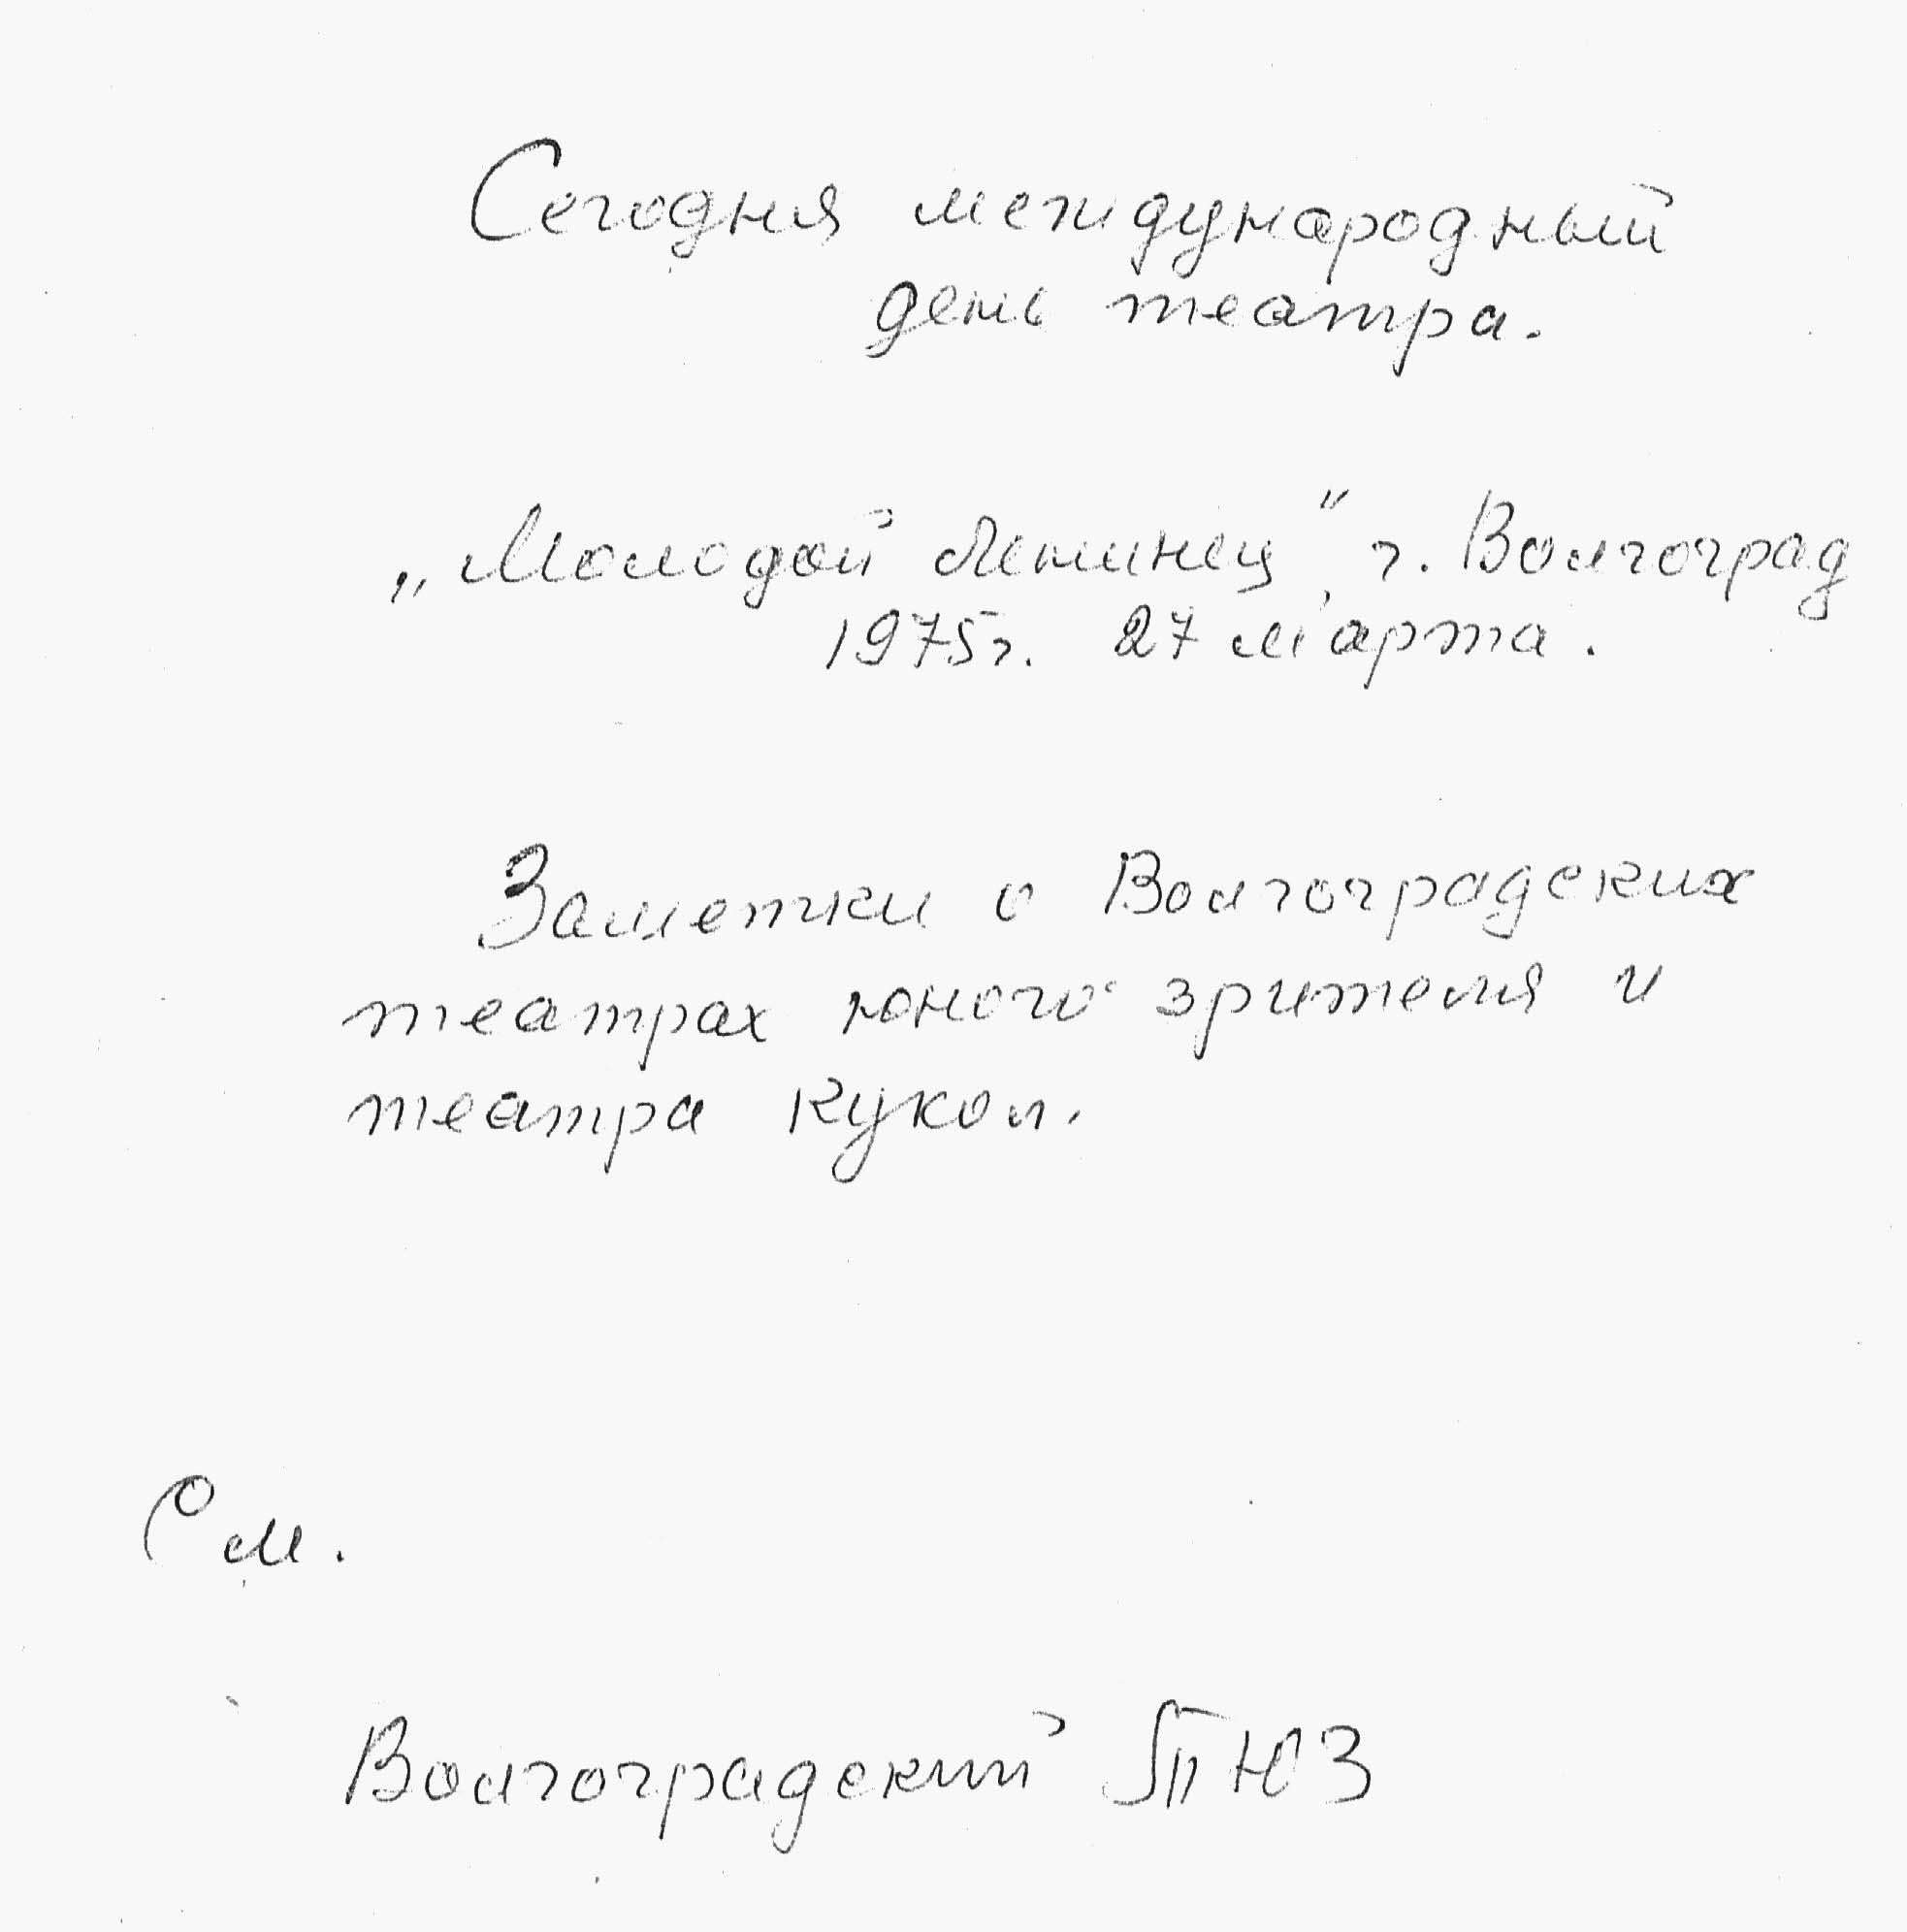 Сегодня международный
день театра.
„Молодой Ленинец“, г. Волгоград
1975г. 27 марта.
Заметки о Волгоградских
театрах юного зрителя и
театра Кукол.
См.
Волгоградский ТЮЗ